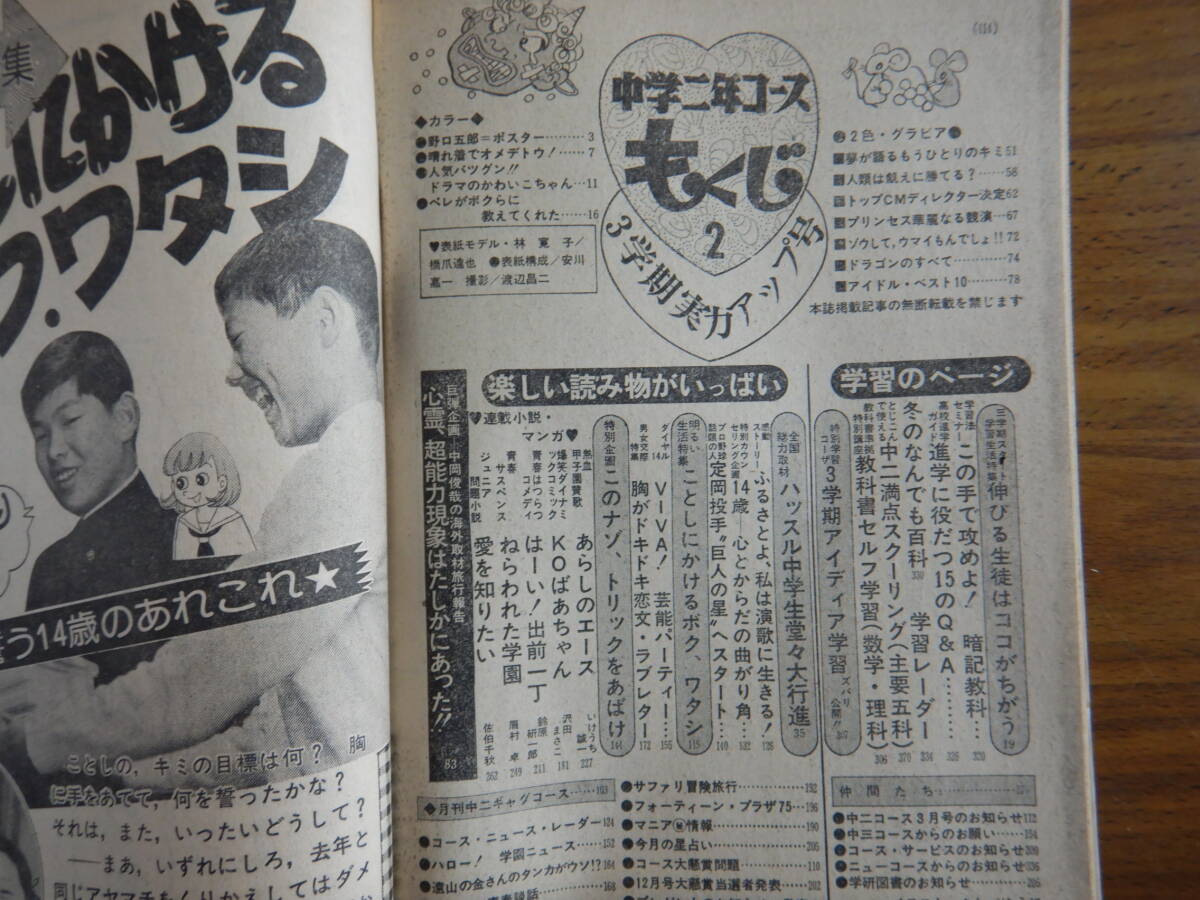 集
にかける
ワタシ
う14歳のあれこれ★
ことしの，キミの目標は何？ 胸
に手をあてて，何を誓ったかな？
それは，また，いったいどうして？
――まあ，いずれにしろ，去年と
同じアヤマチをくりかえしてはダメ
中学二年コース
もくじ
2
3学期実力アップ号
◆カラー◆
●野口五郎＝ポスター………3
●晴れ着でオメデトウ！……7
●人気バツグン!!
ドラマのかわいこちゃん…11
●ペレがボクらに
教えてくれた……16
♥表紙モデル・林 寛子／
橋爪達也 ●表紙構成／安川
嘉一 撮影／渡辺昌二
●2色・グラビア●
夢が語るもうひとりのキミ51
人類は飢えに勝てる？……58
トップCMディレクター決定62
プリンセス華麗なる競演…67
ゾウして，ウマイもんでしょ!!72
ドラゴンのすべて…………74
アイドル・ベスト10………78
本誌掲載記事の無断転載を禁じます
学習のページ
三学期スタート学習生活特集 伸びる生徒はココがちがう 19
学習法セミナー この手で攻めよ！ 暗記教科… 320
高校進学ガイド 進学に役だつ15のQ＆A……… 326
冬のなんでも百科 330 学習レーダー 334
とじこんで使える 中二満点スクーリング（主要五科） 370
教科書準拠特別講座 教科書セルフ学習（数学・理科） 306
特別学習コーナー 3学期アイディア学習 ズバリ公開!! 307
楽しい読み物がいっぱい
全国総力取材 ハッスル中学生堂々大行進 35
感動ストーリー ふるさとよ、私は演歌に生きる！ 126
特別カウンセリング企画 14歳――心とからだの曲がり角… 132
プロ野球話題の人 定岡投手“巨人の星”へスタート… 140
明るい生活特集 ことしにかけるボク、ワタシ 115
ダイヤル14 VIVA！ 芸能パーティー… 155
男女交際特集 胸がドキドキ恋文・ラブレター 172
特別企画 このナゾ、トリックをあばけ 144
♥連載小説・マンガ♥
熱血甲子園賛歌 あらしのエース いけうち誠一 227
爆笑ダイナミックコミック KOばあちゃん 沢田まさ二 181
青春はつらつコメディ はーい！出前一丁 鈴原研一郎 211
青春サスペンス ねらわれた学園 眉村 卓 249
ジュニア問題小説 愛を知りたい 佐伯千秋 262
巨弾企画―中岡俊哉の海外取材旅行報告
心霊、超能力現象はたしかにあった!! 83
◆月刊中二ギャグコース……103
●コース・ニュース・レーダー124
●ハロー！ 学園ニュース……152
●遠山の金さんのタンカがウソ!?164
168
●サファリ冒険旅行…………192
●フォーティーン・プラザ75…196
●マニア㊙情報………………190
●今月の星占い………………206
●コース大懸賞問題…………110
●12月号大懸賞当選者発表…202
仲間たち
●中二コース3月号のお知らせ112
●中三コースからのお願い…154
●コース・サービスのお知らせ300
●ニューコースからのお知らせ336
●学研図書のお知らせ………205